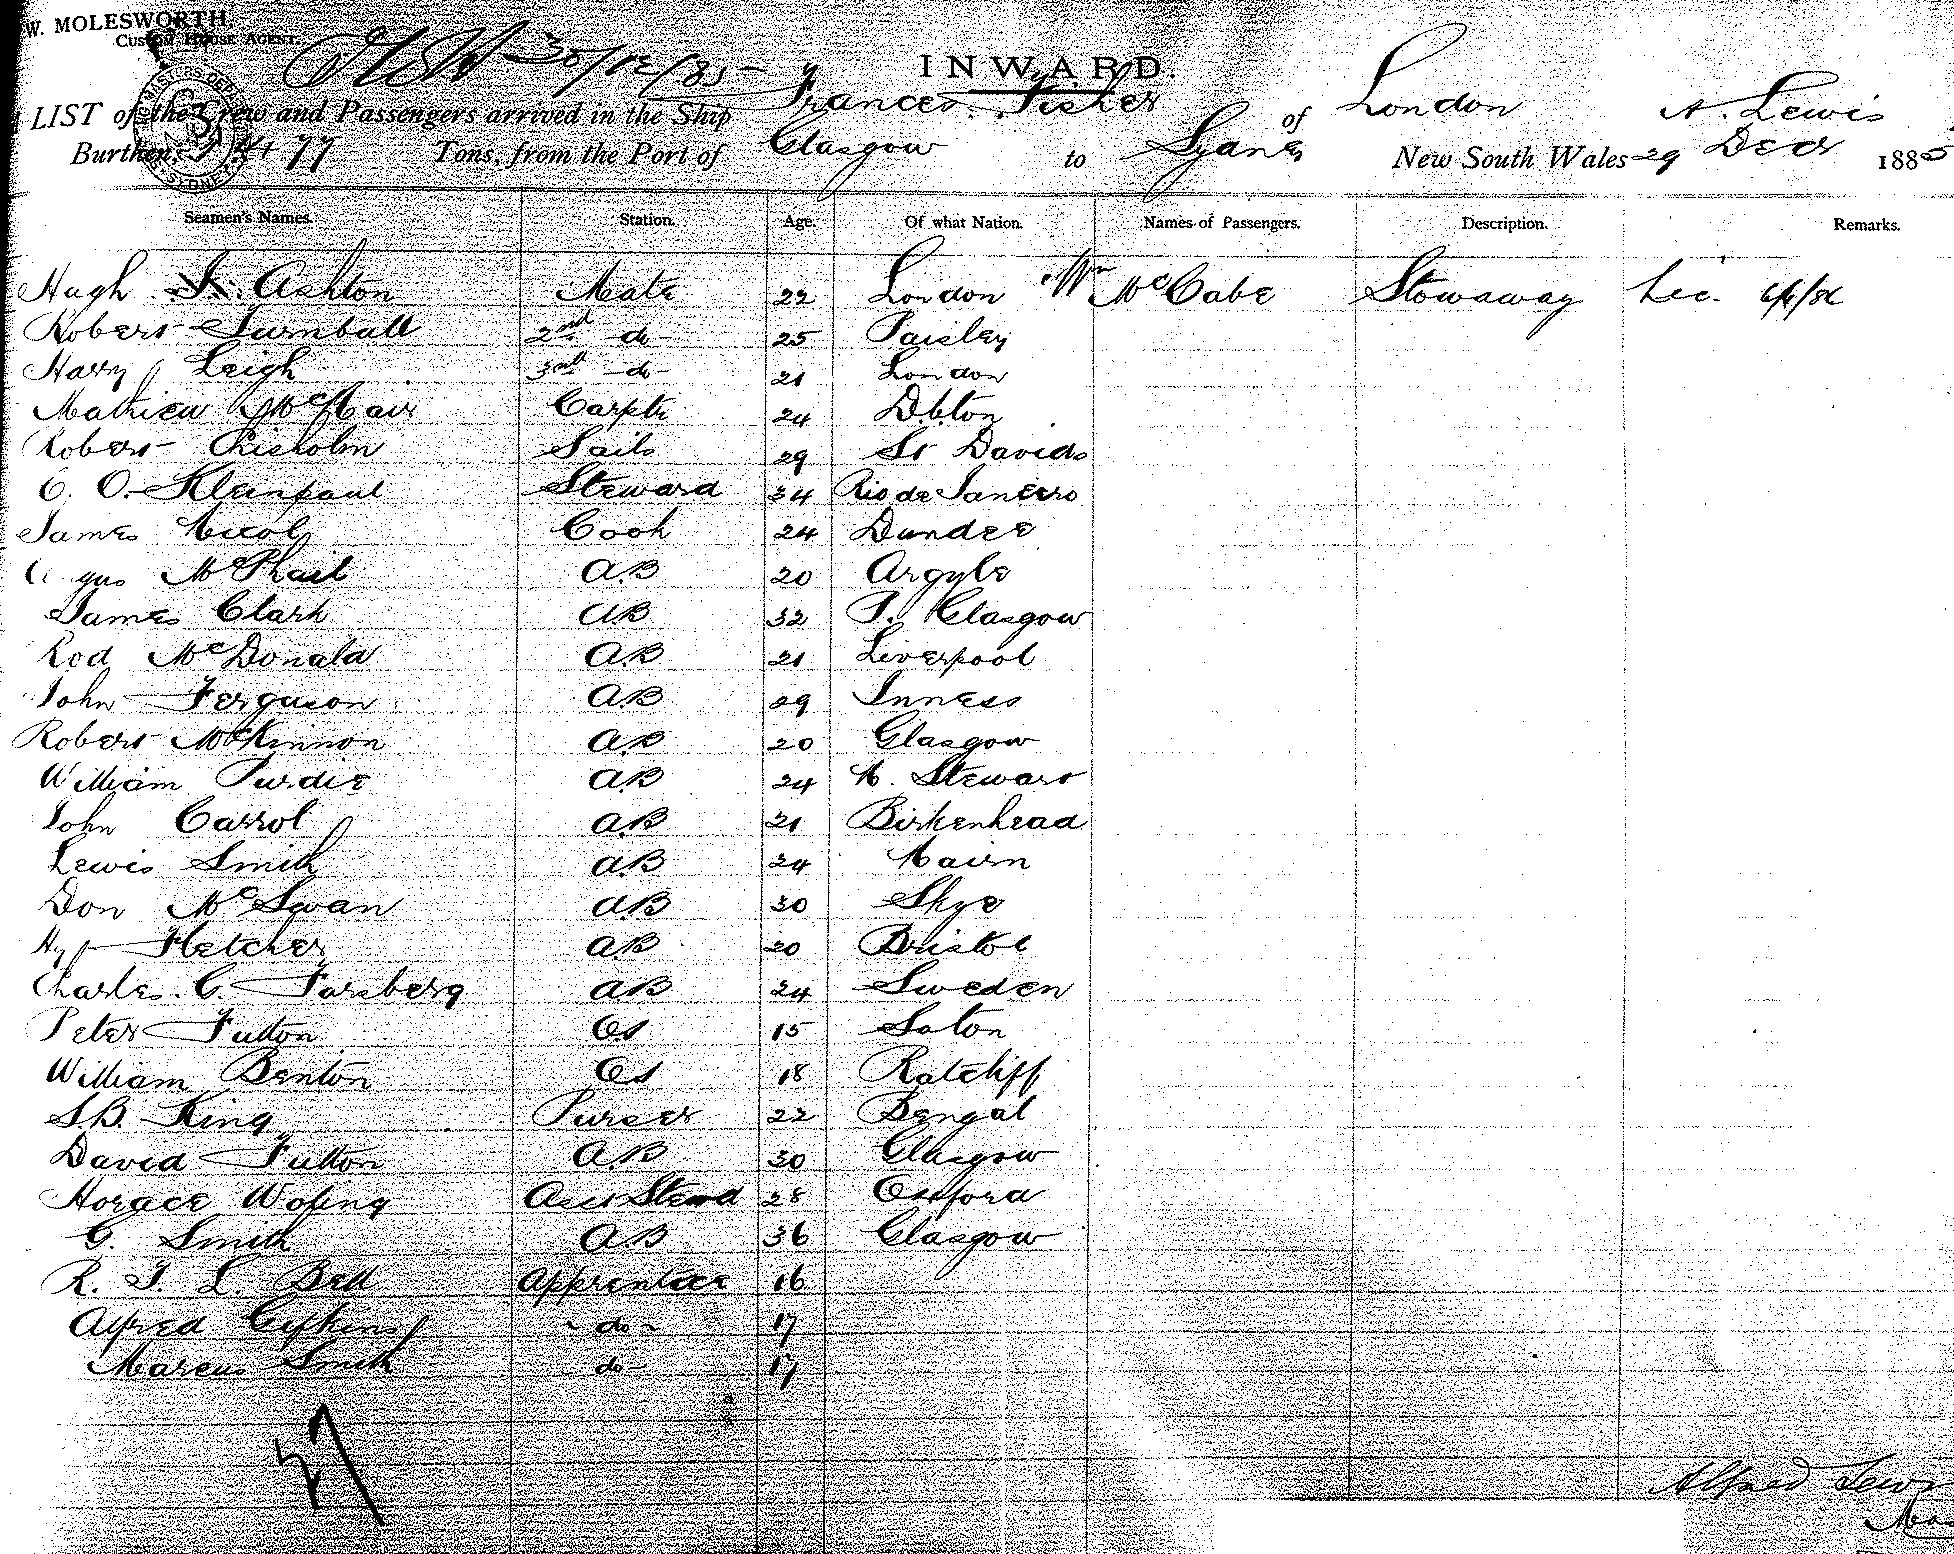 W. MOLESWORTH
Custom House Agent.
30/12/85
INWARD.
LIST of the Crew and Passengers arrived in the Ship Frances Fisher of London A. Lewis
Burthen Tons, from the Port of Glasgow to New South Wales 29 Decr 1885
Seamen's Names. Station. Age. Of what Nation. Names of Passengers. Description. Remarks.
Hugh Ashton Mate 22 London Wm McCabe Stowaway
Robert Turnbull 2nd do 25 Paisley
Harry Leigh 3rd do 21 London
Mathiew Carptr 24
Robert Chisholm Sails 29 St Davids
C. O. Kleinpaul Steward 34 Rio de Janeiro
James Nicol Cook 24 Dundee
gus McPhail A.B 20 Argyle
James Clark AB 32 P. Glasgow
Rod McDonald A.B 21 Liverpool
John Ferguson A.B 29 Inness
Robert McKinnon A.B 20 Glasgow
William Purdie A.B 24 N. Stewart
John Carrol A.B 21 Birkenhead
Lewis Smith A.B 24 Nairn
Don McSwan A.B 30 Skye
Hy Fletcher A.B 20 Bristol
Charles. C. Forsberg A.B 24 Sweden
Peter Fulton O.S 15
William Benton O.S 18 Ratcliff
S.B. King Purser 22 Bengal
David Fulton A.B 30 Glasgow
Horace 28 Oxford
G. Smith A.B 36 Glasgow
R. J. L. Bell Apprentice 16
Alfred Gifkins do 17
Marcus Smith do 17
27
Alfred Lewis